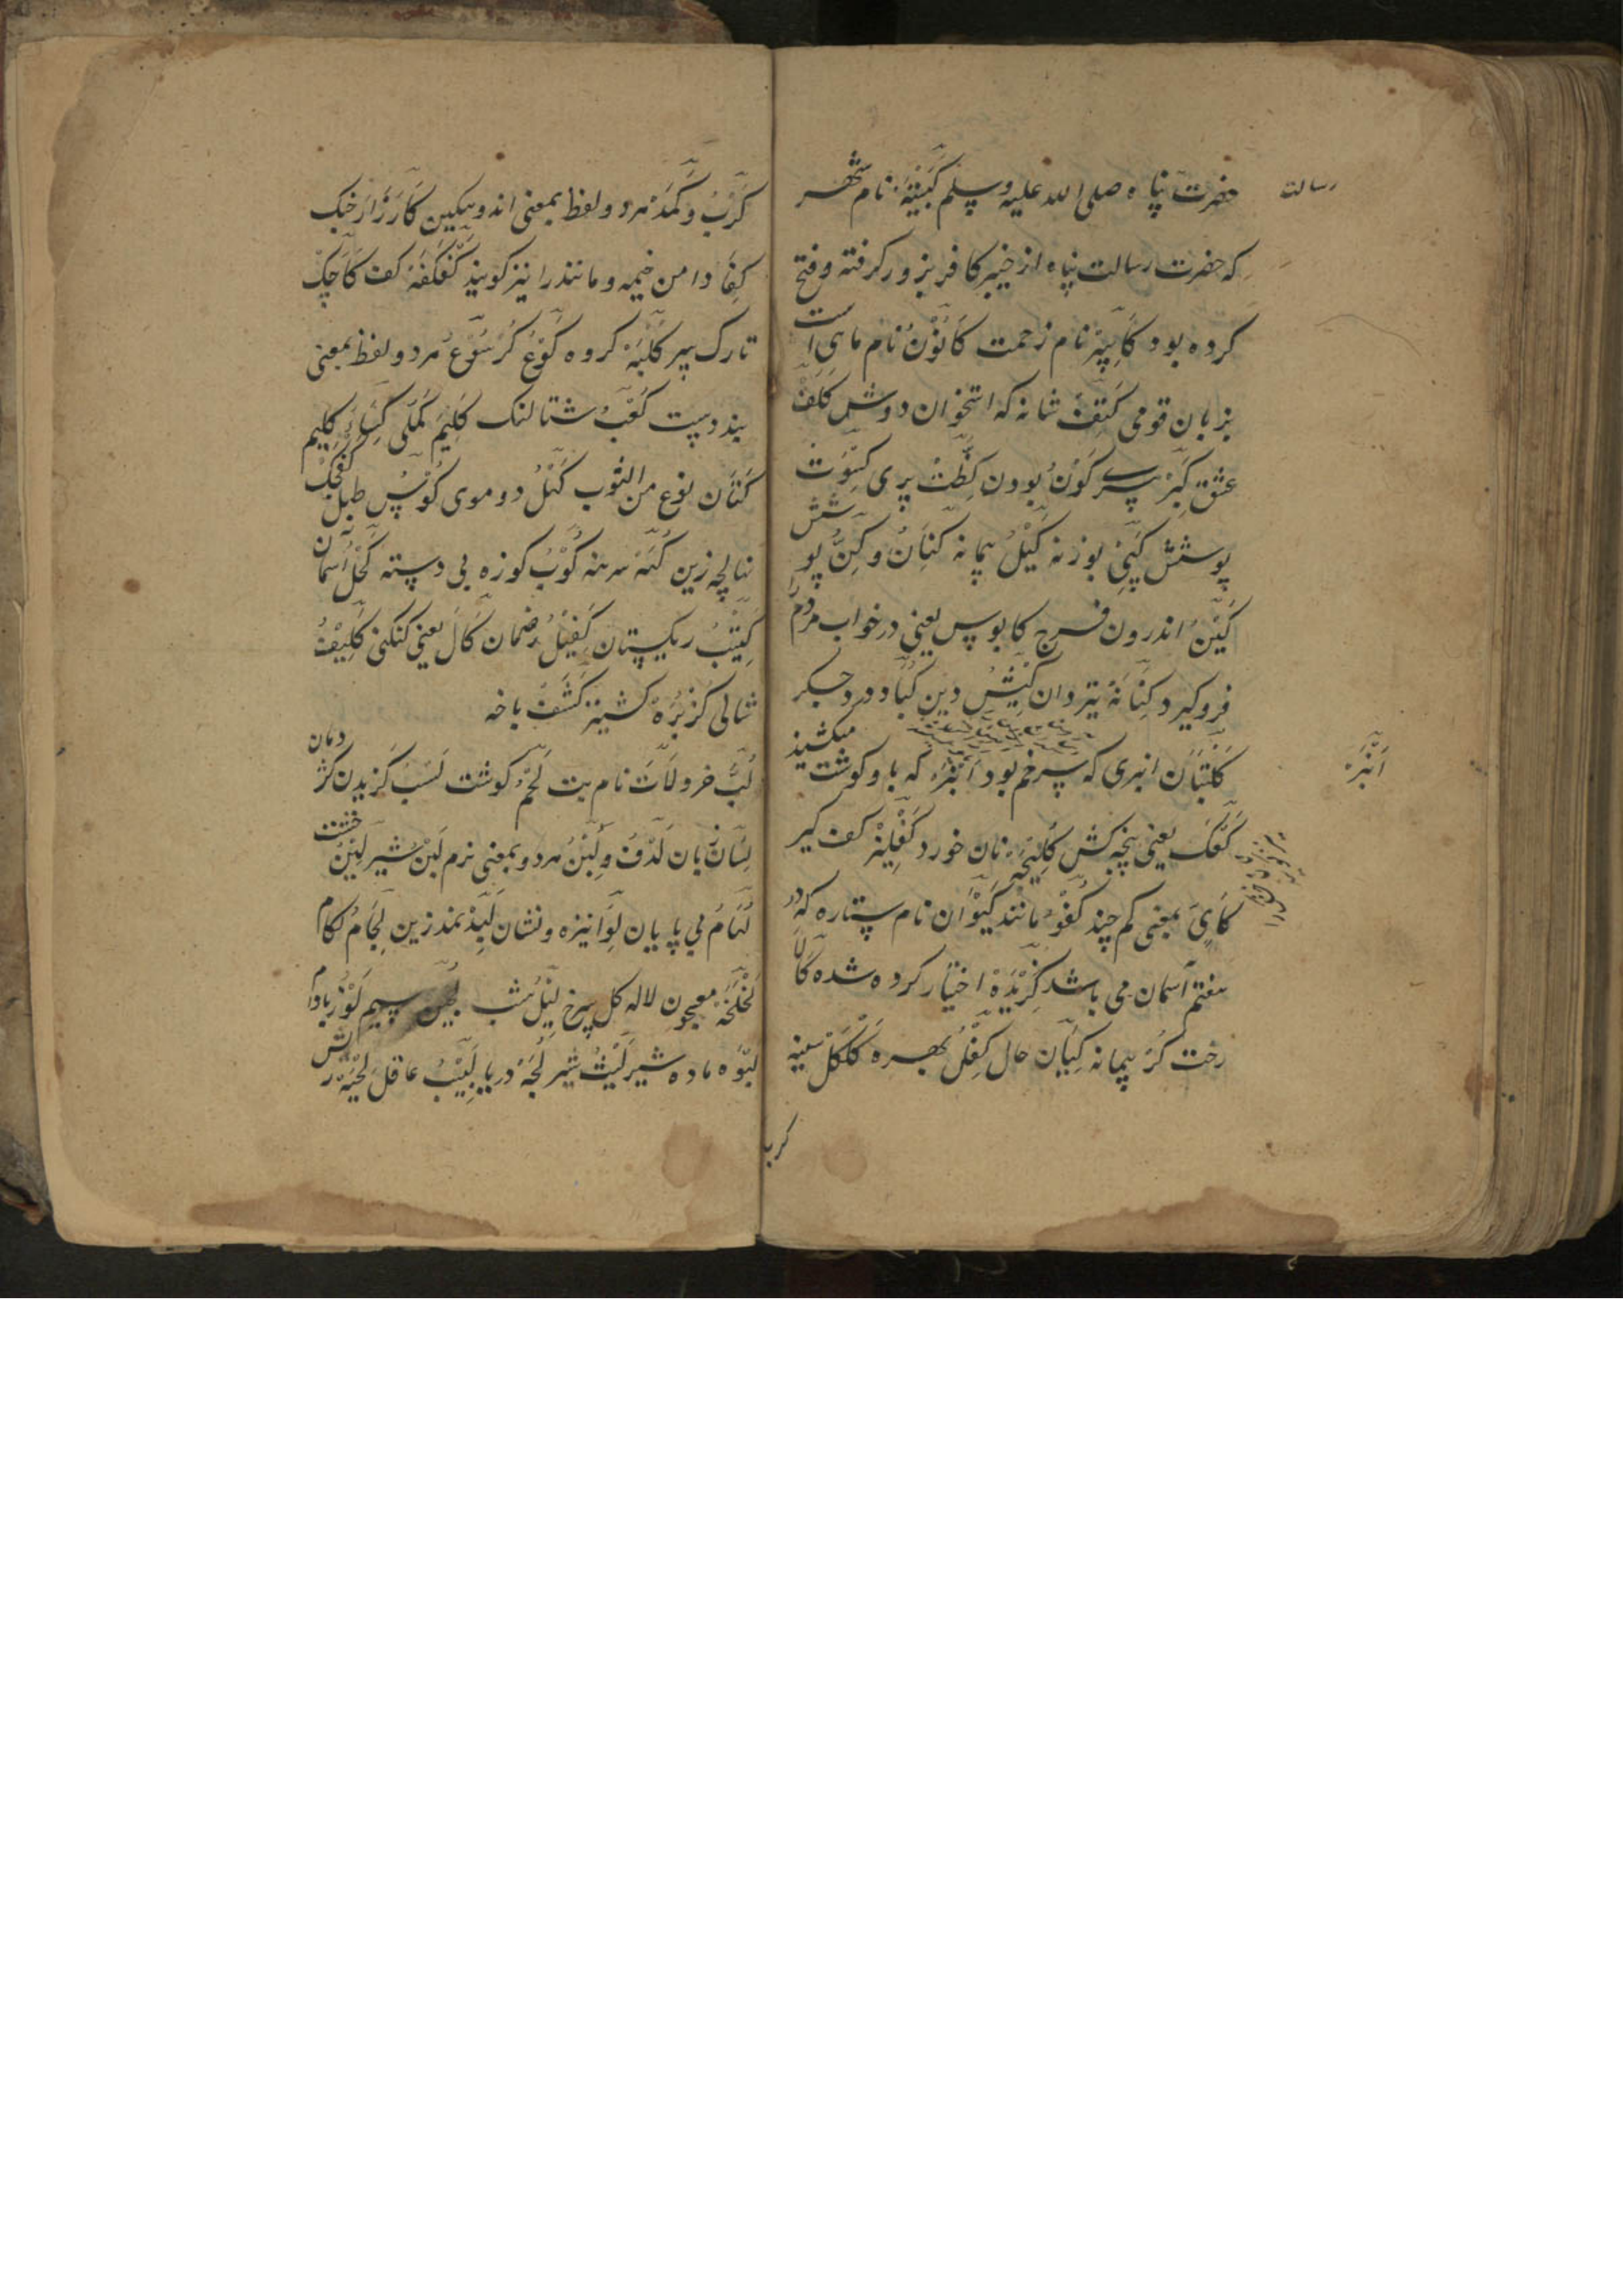 حضرت پناه صلی الله علیه وسلم کَبِیْتَه نام شهر
رسالت
که حضرت رسالت پناه از خیبر کافر بزور گرفته و فتح
کرده بود نام زحمت کَانُوْنُ نام ماهی است
بزبان قومی کَتِفَ شانه که استخوان دوش کَلَفْ
عشق کِبَرْ پیری کَوْنُ بودن کِظَّتْ پری کِسْوَتْ
پوشش کَپِیْ بوزنه کَیْلُ پیمانه کِنَانُ و کِنُّ پوشش
کَیْنُ اندرون فرج کابوس یعنی در خواب مردم
فروگیرد کِنَانَهْ تیردان کِیْشِ دین کُبَادْ درد جگر
کَلْبَتَان انبری که سرخم بود اَنْبَرْ که باو گوشت میکشند
اَنْبَرْ
یعنی پنجه کش کُلِیْچَه نان خورد کَفْلِیْزْ کف گیر
کَایِّ بمعنی کم چند کُفْوْ مانند کَیْوَان نام ستاره که در
هفتم آسمان می باشد گُزِیْدَهْ اختیار کرده شده کَالَا
رخت کُرْ پیمانه کِیَان حال کِفْلُ بهره کَلْکَلْ سینه
کرب
کَرْبُ و کَمَدْ هر دو لفظ بمعنی اندوهگین کَارَزَارْ جنگ
کِفَا دامن خیمه و مانند را نیز گویند کف کَاچِکْ
تارک سر کُلْبَهْ گروه کُوْعُ کُرْسُوْعُ هر دو لفظ بمعنی
بند دست کَعْبُ شتالنگ کَلِیْمْ کَمْلی کِسَاءْ گلیم
کَتَان نوع من الثوب کَهْلُ دو موی کُوْسُ طبل
نهالچه زین کُمَّهْ سرمه کُوْبُ کوزه بی دسته کَحْلُ آسمان
کَثِیْبُ ریگستان کَفِیْلُ ضمان کَالْ یعنی کنکنی
شالی کُزْبُرَهْ کشنیز کَشَفْ باخه
لُبُّ خرد لَاتَ نام بت لَحْمُ گوشت لَسَبْ گزیدن کژدمان
لِسَانُ زبان لَدْنُ و لَیِّنُ هر دو بمعنی نرم لَبَنُ شیر لَبِنُ خشت
بی پایان لِوَا نیزه و نشان لِبْدْ نمد زین لِجَامُ لکام
لَخْلَخَهْ معجون لاله گل سرخ لَیْلُ شب سیم لَوْزُ بادام
لَبْوَهْ ماده شیر لَیْثُ شیر لُجَّهْ دریا لَبِیْبُ عاقل لِحْیَهْ ریش